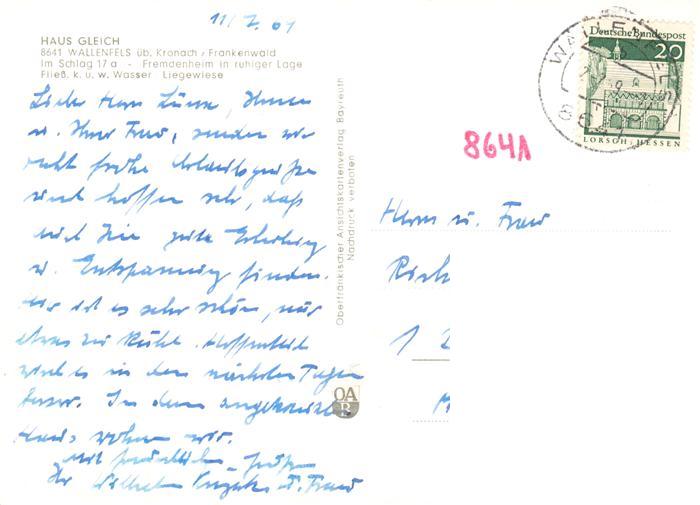 11/7. 69
HAUS GLEICH
8641 WALLENFELS üb. Kronach / Frankenwald
Im Schlag 17 a - Fremdenheim in ruhiger Lage
Fließ. k. u. w. Wasser Liegewiese
Lieber Herr Ihnen
u. Ihrer Frau, senden wir
recht frohe Urlaubsgrüße
und hoffen sehr, daß
auch Sie gute Erholung
u. Entspannung finden.
Hier ist es sehr schön, nur
etwas zu kühl. Hoffentlich
wird es in den nächsten Tagen
besser. In dem angekreuzten
Haus wohnen wir.
Mit freundlichen Grüßen
Ihr Wilhelm u. Frau
Oberfränkischer Ansichtskartenverlag Bayreuth
Nachdruck verboten
OA
B
WALLENFELS
8641
Deutsche Bundespost
20
LORSCH / HESSEN
8641
Herrn u. Frau
Rich
1